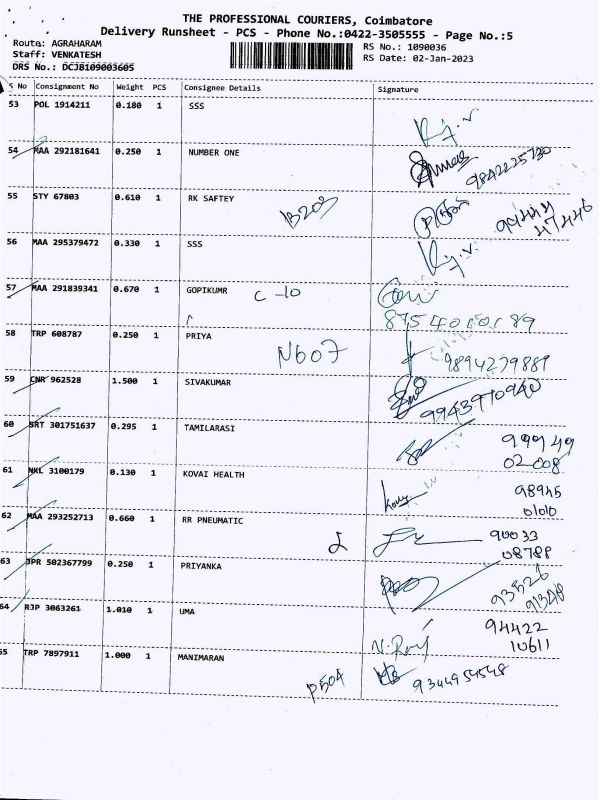 THE PROFESSIONAL COURIERS, Coimbatore
Delivery Runsheet - PCS - Phone No.:0422-3505555 - Page No.:5
Route: AGRAHARAM RS No.: 1090036
Staff: VENKATESH RS Date: 02-Jan-2023
DRS No.: DCJB109003605
S No Consignment No Weight PCS Consignee Details Signature
53 POL 1914211 0.180 1 SSS
54 MAA 292181641 0.250 1 NUMBER ONE
9842225730
55 STY 67803 0.610 1 RK SAFTEY
B203 99444
47446
56 MAA 295379472 0.330 1 SSS
57 MAA 291839341 0.670 1 GOPIKUMR C-10
58 TRP 608787 0.250 1 PRIYA
N607 9894279889
59 CNR 962528 1.500 1 SIVAKUMAR
9943970940
60 SRT 301751637 0.295 1 TAMILARASI
99949
02008
61 NKL 3100179 0.130 1 KOVAI HEALTH
98945
01010
62 MAA 293252713 0.660 1 RR PNEUMATIC
90033
08788
63 JPR 502367799 0.250 1 PRIYANKA
64 RJP 3063261 1.010 1 UMA
94422
10611
65 TRP 7897911 1.000 1 MANIMARAN
P504 9344954548